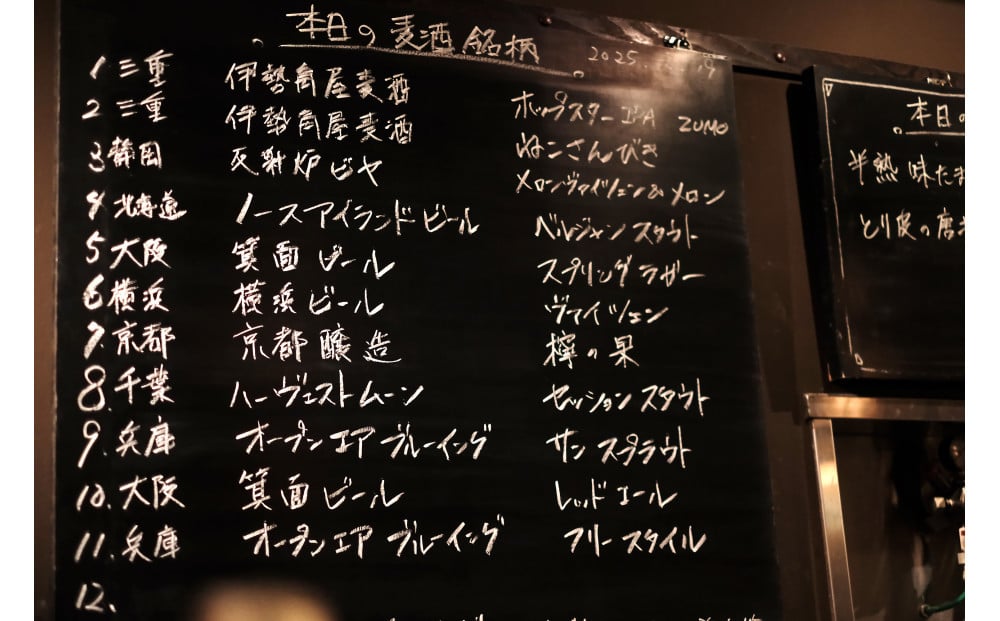 本日の麦酒銘柄 2025
1 三重 伊勢角屋麦酒 ホップスターIPA ZUMO
2 三重 伊勢角屋麦酒 ねこさんびき
3 静岡 反射炉ビヤ メロンヴァイツェン&メロン
4 北海道 ノースアイランドビール ベルジャンスタウト
5 大阪 箕面ビール スプリングラガー
6 横浜 横浜ビール ヴァイツェン
7. 京都 京都醸造 檸の果
8. 千葉 ハーヴェストムーン セッションスタウト
9. 兵庫 オープンエアブルーイング サンスプラウト
10. 大阪 箕面ビール レッドエール
11. 兵庫 オープンエアブルーイング フリースタイル
12.
本日の
半熟味たま
とり皮の唐